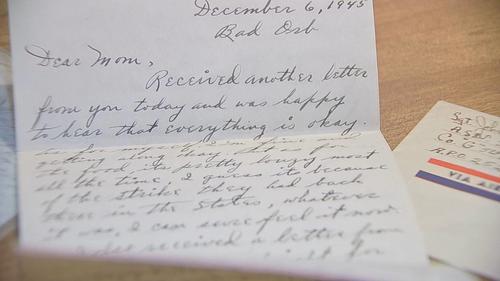 December 6, 1945
Bad Orb
Dear Mom,
Received another letter
from you today and was happy
to hear that everything is okay.
getting along okay. As for
the food its pretty lousy most
all the time. I guess its because
of the strike they had back
there in the States, whatever
it was, I can sure feel it now.
received a letter from
for
Sgt
Co G
VIA